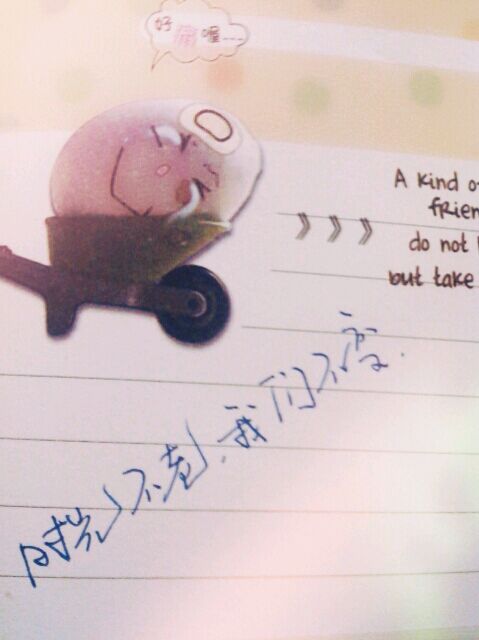 好痛喔---
A kind o
frien
》》》 do not
but take
时光不老,我们不变.